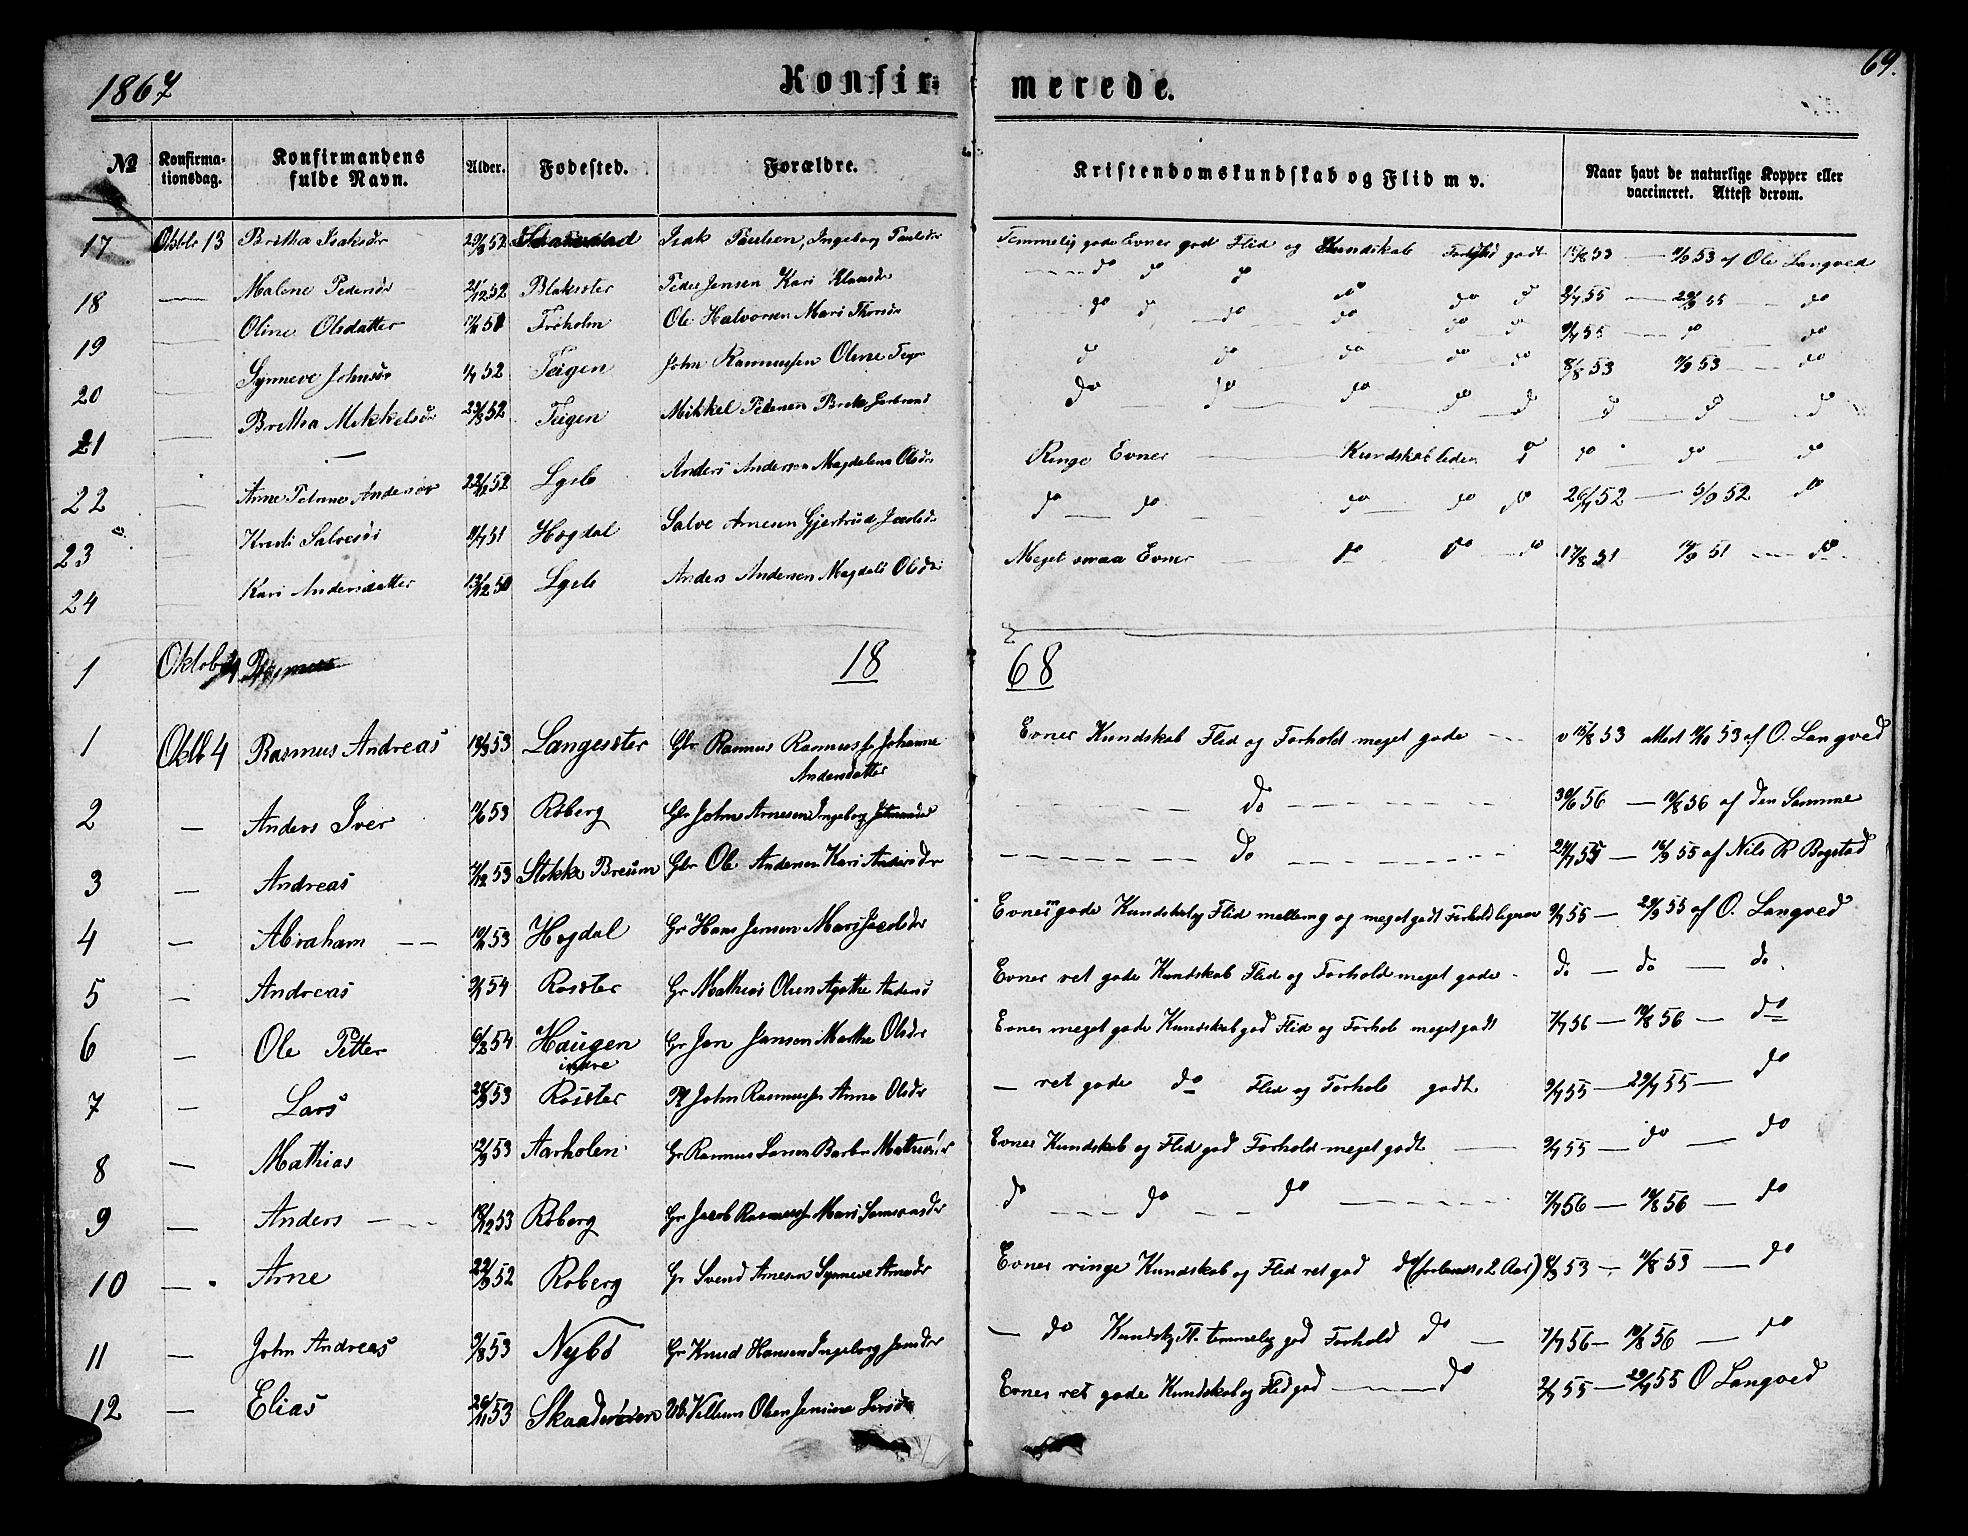 1867 Konfir- merede. 69.
No Konfirmationsdag. Konfirmandens fulde Navn. Alder. Fødested. Forældre. Kristendomskundskab og Flid m v. Naar havt de naturlige Kopper eller vaccineret. Attest derom.
17 Oktbr 13 Britha Isaksdr 52 Isak Paulsen, Ingeborg Paulsdr Temmelig gode Evner god Flid og Kundskab Forhold godt 15/8 53 — 11/9 53 af Ole Langved
18 — Malene Pedersdr 21/12 52 Blaksæter Peder Jensen Kari Klausdr do do do do do d 2/7 55 — 29/9 55 — do
19 — Oline Olsdatter 51 Frøholm Ole Halvorsen Mari Thorsdr do d do do do do 9/7 55 — do do
20 — Synneve Johnsdr 52 Teigen John Rasmussen Oline do do do do do 8/8 53 11/9 53 — do
21 — Britha Mikkelsdr 52 Teigen Mikkel Petersen do do do do d d d d
22 — Anne Petrine Andersdr 22/12 52 Lyslo Anders Andersen Magdalena Olsdr Ringe Evner — Kundskab liden d do do do
23 — Salvesdr 51 Hogdal Salve Arnesen Gjertrud Jacobsdr do — do do do do 26/7 52 — 5/9 52 do
24 — Kari Andersdatter 13/12 50 Lyslo Anders Andersen Magdale Olsdr Meget smaa Evner — do do do 17/8 51 51 — do
1 Oktob 4 Rasmus 18 68
1 Oktb 4 Rasmus Andreas 53 Langesæter Gbr Rasmus Rasmuss Johanne Andersdatter Evner Kundskab Flid og Forhold meget gode — v 15/8 53 attest 53 af O. Langved
2 — Anders Iver 53 Røberg Gbr John Arnesen Ingeborg — do — 30/6 56 — 10/8 56 af den Samme
3 — Andreas 7/12 53 Stokke Breum Gbr Ole Andersen Kari Andersdr — do — 55 — 55 af Nils R Bogstad
4 — Abraham — 53 Hogdal Gr Hans Jensen Mari Jacobsdr Evner gode Kundskab Flid mellem g og meget godt Forhold lignov 9/7 55 — 29/9 55 af O. Langved
5 — Andreas 54 Røsæter Gr Mathias Olsen Agathe Andersd Evner ret gode Kundskab Flid og Forhold meget gode - do — do — do
6 — Ole Petter 6/2 54 Haugen indre Gr Jan Jansen Marthe Olsdr Evner meget gode Kundskab god Flid og Forhol meget godt 7/7 56 — 10/8 56 — do
7 — Lars 53 Røsæter Pl John Rasmuss Anne Olsdr — ret gode do Flid og Forhol godt 9/7 55 — 29/7 55 — do
8 — Mathias 12/9 53 Aarholen Gr Rasmus Larsen Barbr Mathiasdr Evner Kundskab og Flid god Forhold meget godt — 9/7 55 — do — do
9 — Anders — 18/12 53 Røberg Gr Jacob Rasmuss Mari Samsonsdr do — do — do — 7/7 56 — 10/8 56 — do
10 — Arne 52 Røberg Gr Svend Arnesen Synneve Arnesdr Evner ringe Kundskab og Flid ret god do (forberedt i 2 Aar) 53 — 11/8 53 — do
11 — John Andreas 9/8 53 Nybø Gr Knud Hansen Ingeborg Jensdr — do Kundsk Fl. temmelig god Forhold do — 7/7 56 — 10/8 56 — do
12 — Elias 26/11 53 Skaadenøren Ub. Villum Olsen Jensine Evner ret gode Kundskab og Flid god — do 2/7 55 — 29/7 55 O Langved